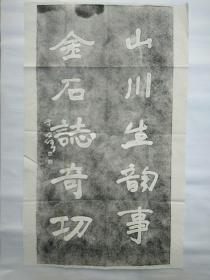 山川生韵事
金石誌奇功